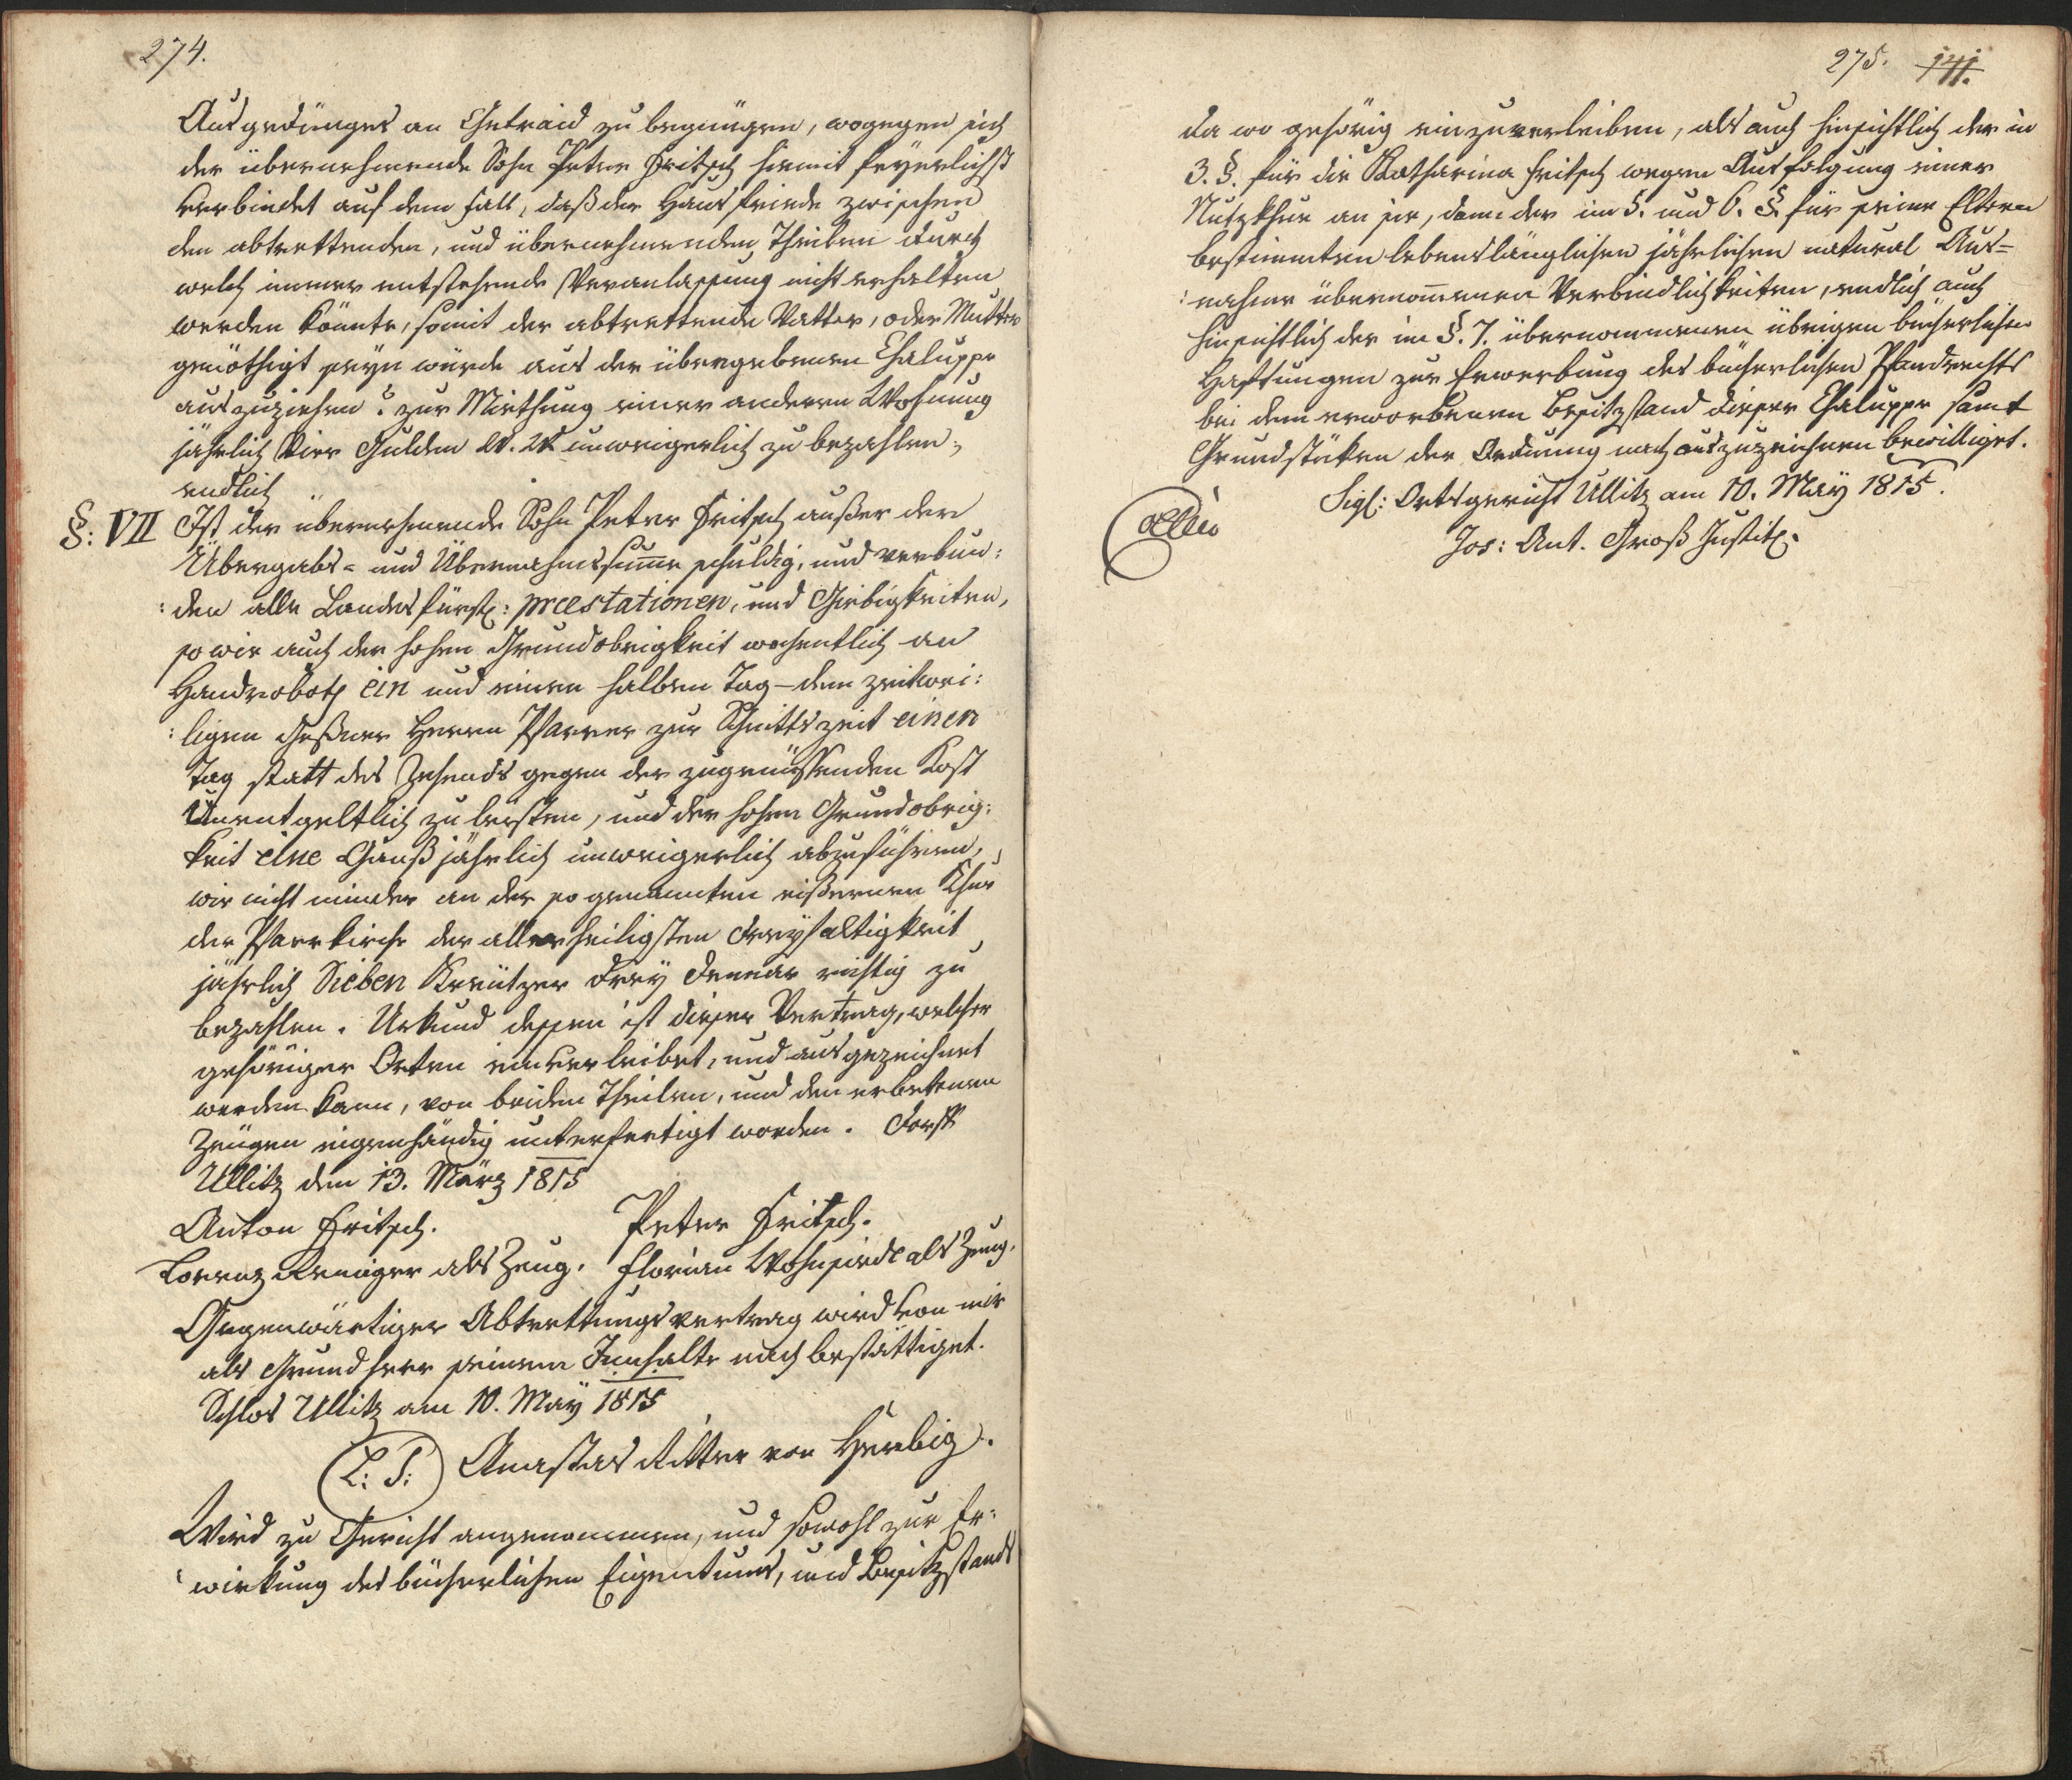 274.
Ausgedinges an Getraid zu begnügen, wogegen sich
der übernehmende Sohn Peter Fritsch hiemit feyerlichst
verbindet auf dem Fall, daß der Hausfriede zwischen
den abtrettenden, und übernehmenden Theilen durch
welch immer entstehende Veranlassung nicht erhalten
werden könnte, somit der abtrettende Vatter, oder Mutter
genöthigt seyn würde aus der übergebenen Chaluppe
auszuziehen? zur Miethung einer anderen Wohnung
jährlich Vier Gulden W. W. unweigerlich zu bezahlen,
endlich
§: VII Ist der übernehmende Sohn Peter Fritsch außer der
Übergabs- und Übernahmssume schuldig, und verbun:
:den alle Landesfürstl: praestationen, und Giebigkeiten,
so wie auch der hohen Grundobrigkeit wochentlich an
Handroboth ein und einen halben Tag – dem zeitwei:
:ligen Herrn Pfarrer zur Schnittszeit einen
Tag statt des Zehends gegen der zugenüssenden Kost
Unentgeltlich zu leisten, und der hohen Grundobrig:
keit eine Ganß jährlich unweigerlich abzuführen,
wie nicht minder an der so genannten eißernen Khue
der Pfarrkirche der allerheiligsten Dreyfaltigkeit
jährlich Sieben Kreützer drey Denar richtig zu
bezahlen. Urkund dessen ist dieser Vertrag, welcher
gehöriger Orten einverleibet, und ausgezeichnet
werden kann, von beiden Theilen, und den erbetenen
Zeügen eigenhändig unterfertigt worden. Dorf
Ullitz den 13. März 1815
Anton Fritsch. Peter Fritsch.
Lorenz als Zeug. Florian als Zeug.
Gegenwärtiger Abtrettungsvertrag wird von mir
als Grundherr seinem Innhalte nach bestättiget.
Schlos Ullitz am 10. May 1815
L: S: Anastas Ritter von Herbig.
Wird zu Gericht angenommen, und sowohl zur Er:
wirkung des bücherlichen Eigentums, und Besitzstands
275. 141.
da wo gehörig einzuverleiben, als auch hinsichtlich der in
3. §. für die Katharina Fritsch wegen Ausfolgung einer
Nutzkhue an sie, dann der im 5. und 6. §. für seine Eltern
bestimmten lebenslänglichen jährlichen natural Aus-
:nahme übernomenen Verbindlichkeiten, endlich auch
hinsichtlich der im §. 7. übernommenen übrigen bücherlichen
Haftungen zur Erwerbung des bücherlichen Pfandrechts
bei dem erworbenen Besitzstand dieser Chaluppe samt
Grundstüken der Ordnung nach auszuzeichnen bewilliget.
Sigl: Ortsgericht Ullitz am 10. May 1815.
Jos: Ant. Groß Justitz.